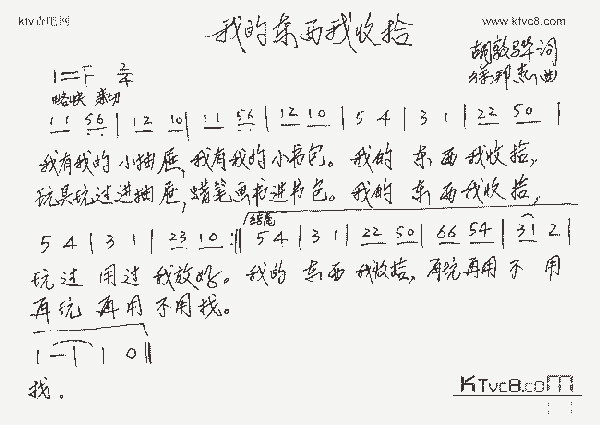 ktv吉吧网 www.ktvc8.com
我的东西我收拾
胡敦骅词
徐邦杰曲
1=F 2/4
略快 亲切
11 56 | 12 10 | 11 56 | 12 10 | 5 4 | 3 1 | 22 50 |
我有我的小抽屉,我有我的小书包。我的 东西我收拾,
玩具玩过进抽屉,蜡笔画书进书包。我的 东西我收拾,
结尾
5 4 | 3 1 | 23 10 :|| 5 4 | 3 1 | 22 50 | 66 54 | 31 2 |
玩过 用过 我放好。我的 东西 我收拾,再玩再用 不 用
再玩 再用 不用找。
1 - | 1 0 ||
找。
KTvc8.com